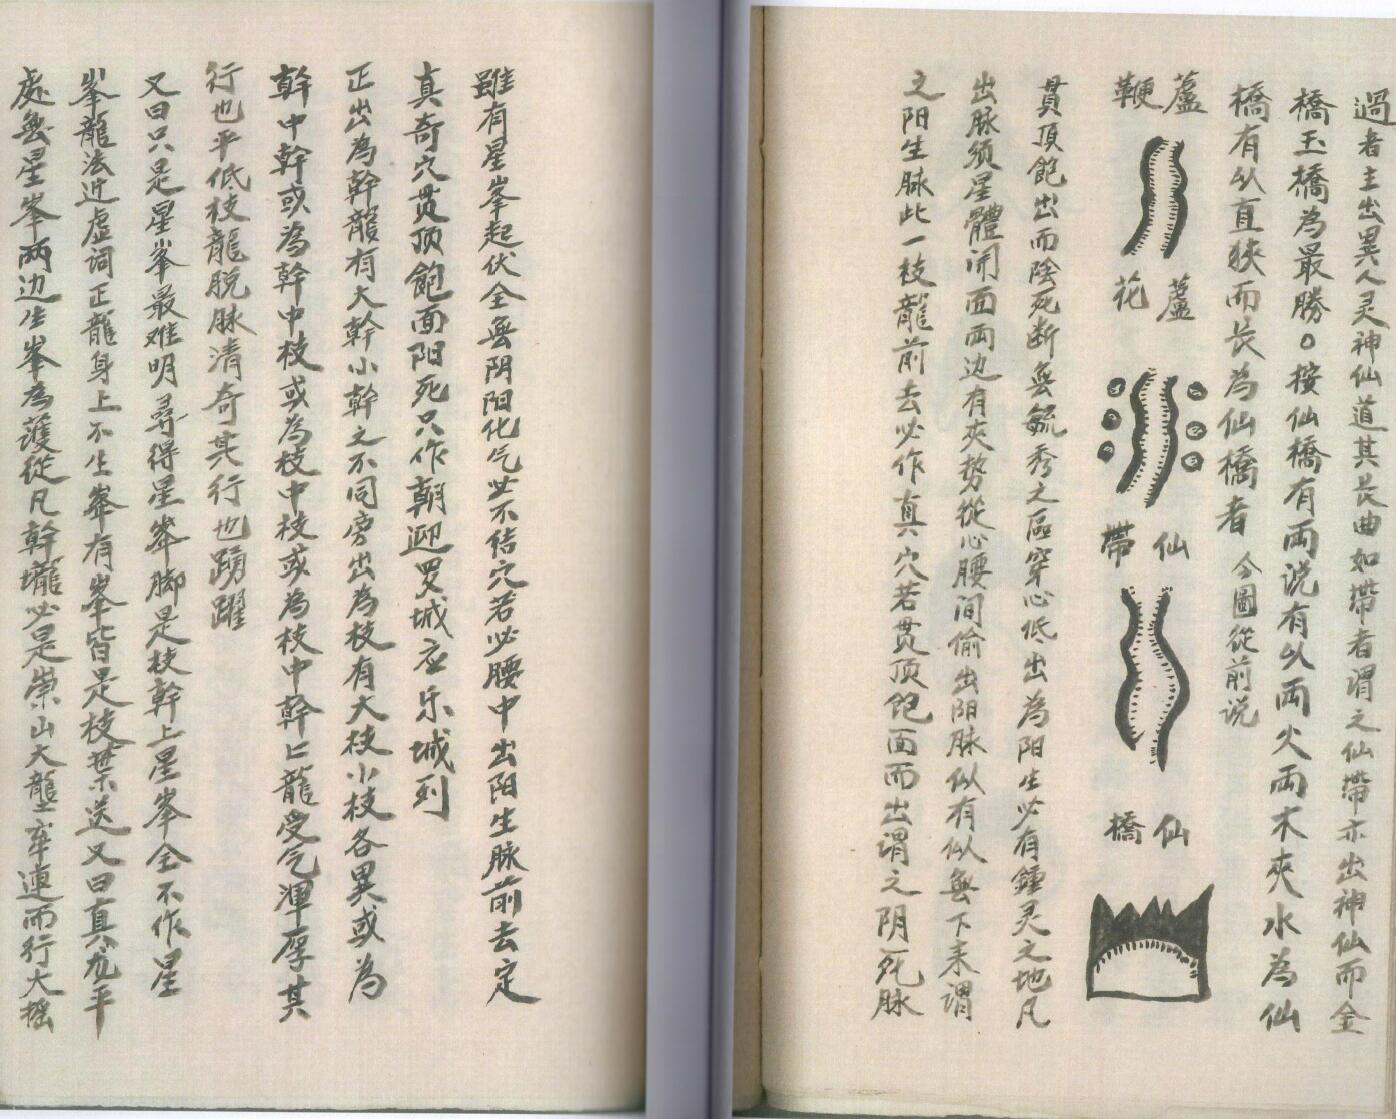 過者主出異人灵神仙道其長曲如帶者謂之仙帶亦出神仙而金
橋玉橋為最勝○按仙橋有両说有以両火両木夾水為仙
橋有以直狹而长為仙橋者 今圖從前说
蘆鞭
蘆花
仙帶
仙橋
貫頂飽出而陰死断無毓秀之區穿心低出為阳生必有鍾灵之地凡
出脉须星體開面両边有夾势從心腰间偷出阳脉似有似無下来謂
之阳生脉此一枝龍前去必作真穴若贯顶饱面而出謂之阴死脉
雖有星峯起伏全無阴阳化气必不结穴若必腰中出阳生脉前去定
真奇穴贯顶飽面阳死只作朝迎罗城应乐城到
正出為幹龍有大幹小幹之不同旁出為枝有大枝小枝各異或為
幹中幹或為幹中枝或為枝中枝或為枝中幹㠯龍受气渾厚其
行也平低枝龍脱脉清奇其行也踴躍
又曰只是星峯最难明尋得星峯脚是枝幹上星峯全不作星
峯龍法近虛词正龍身上不生峯有峯皆是枝葉送又曰真龙平
處無星峯两边生峯為護從凡幹壠必是崇山大壟牽連而行大摇